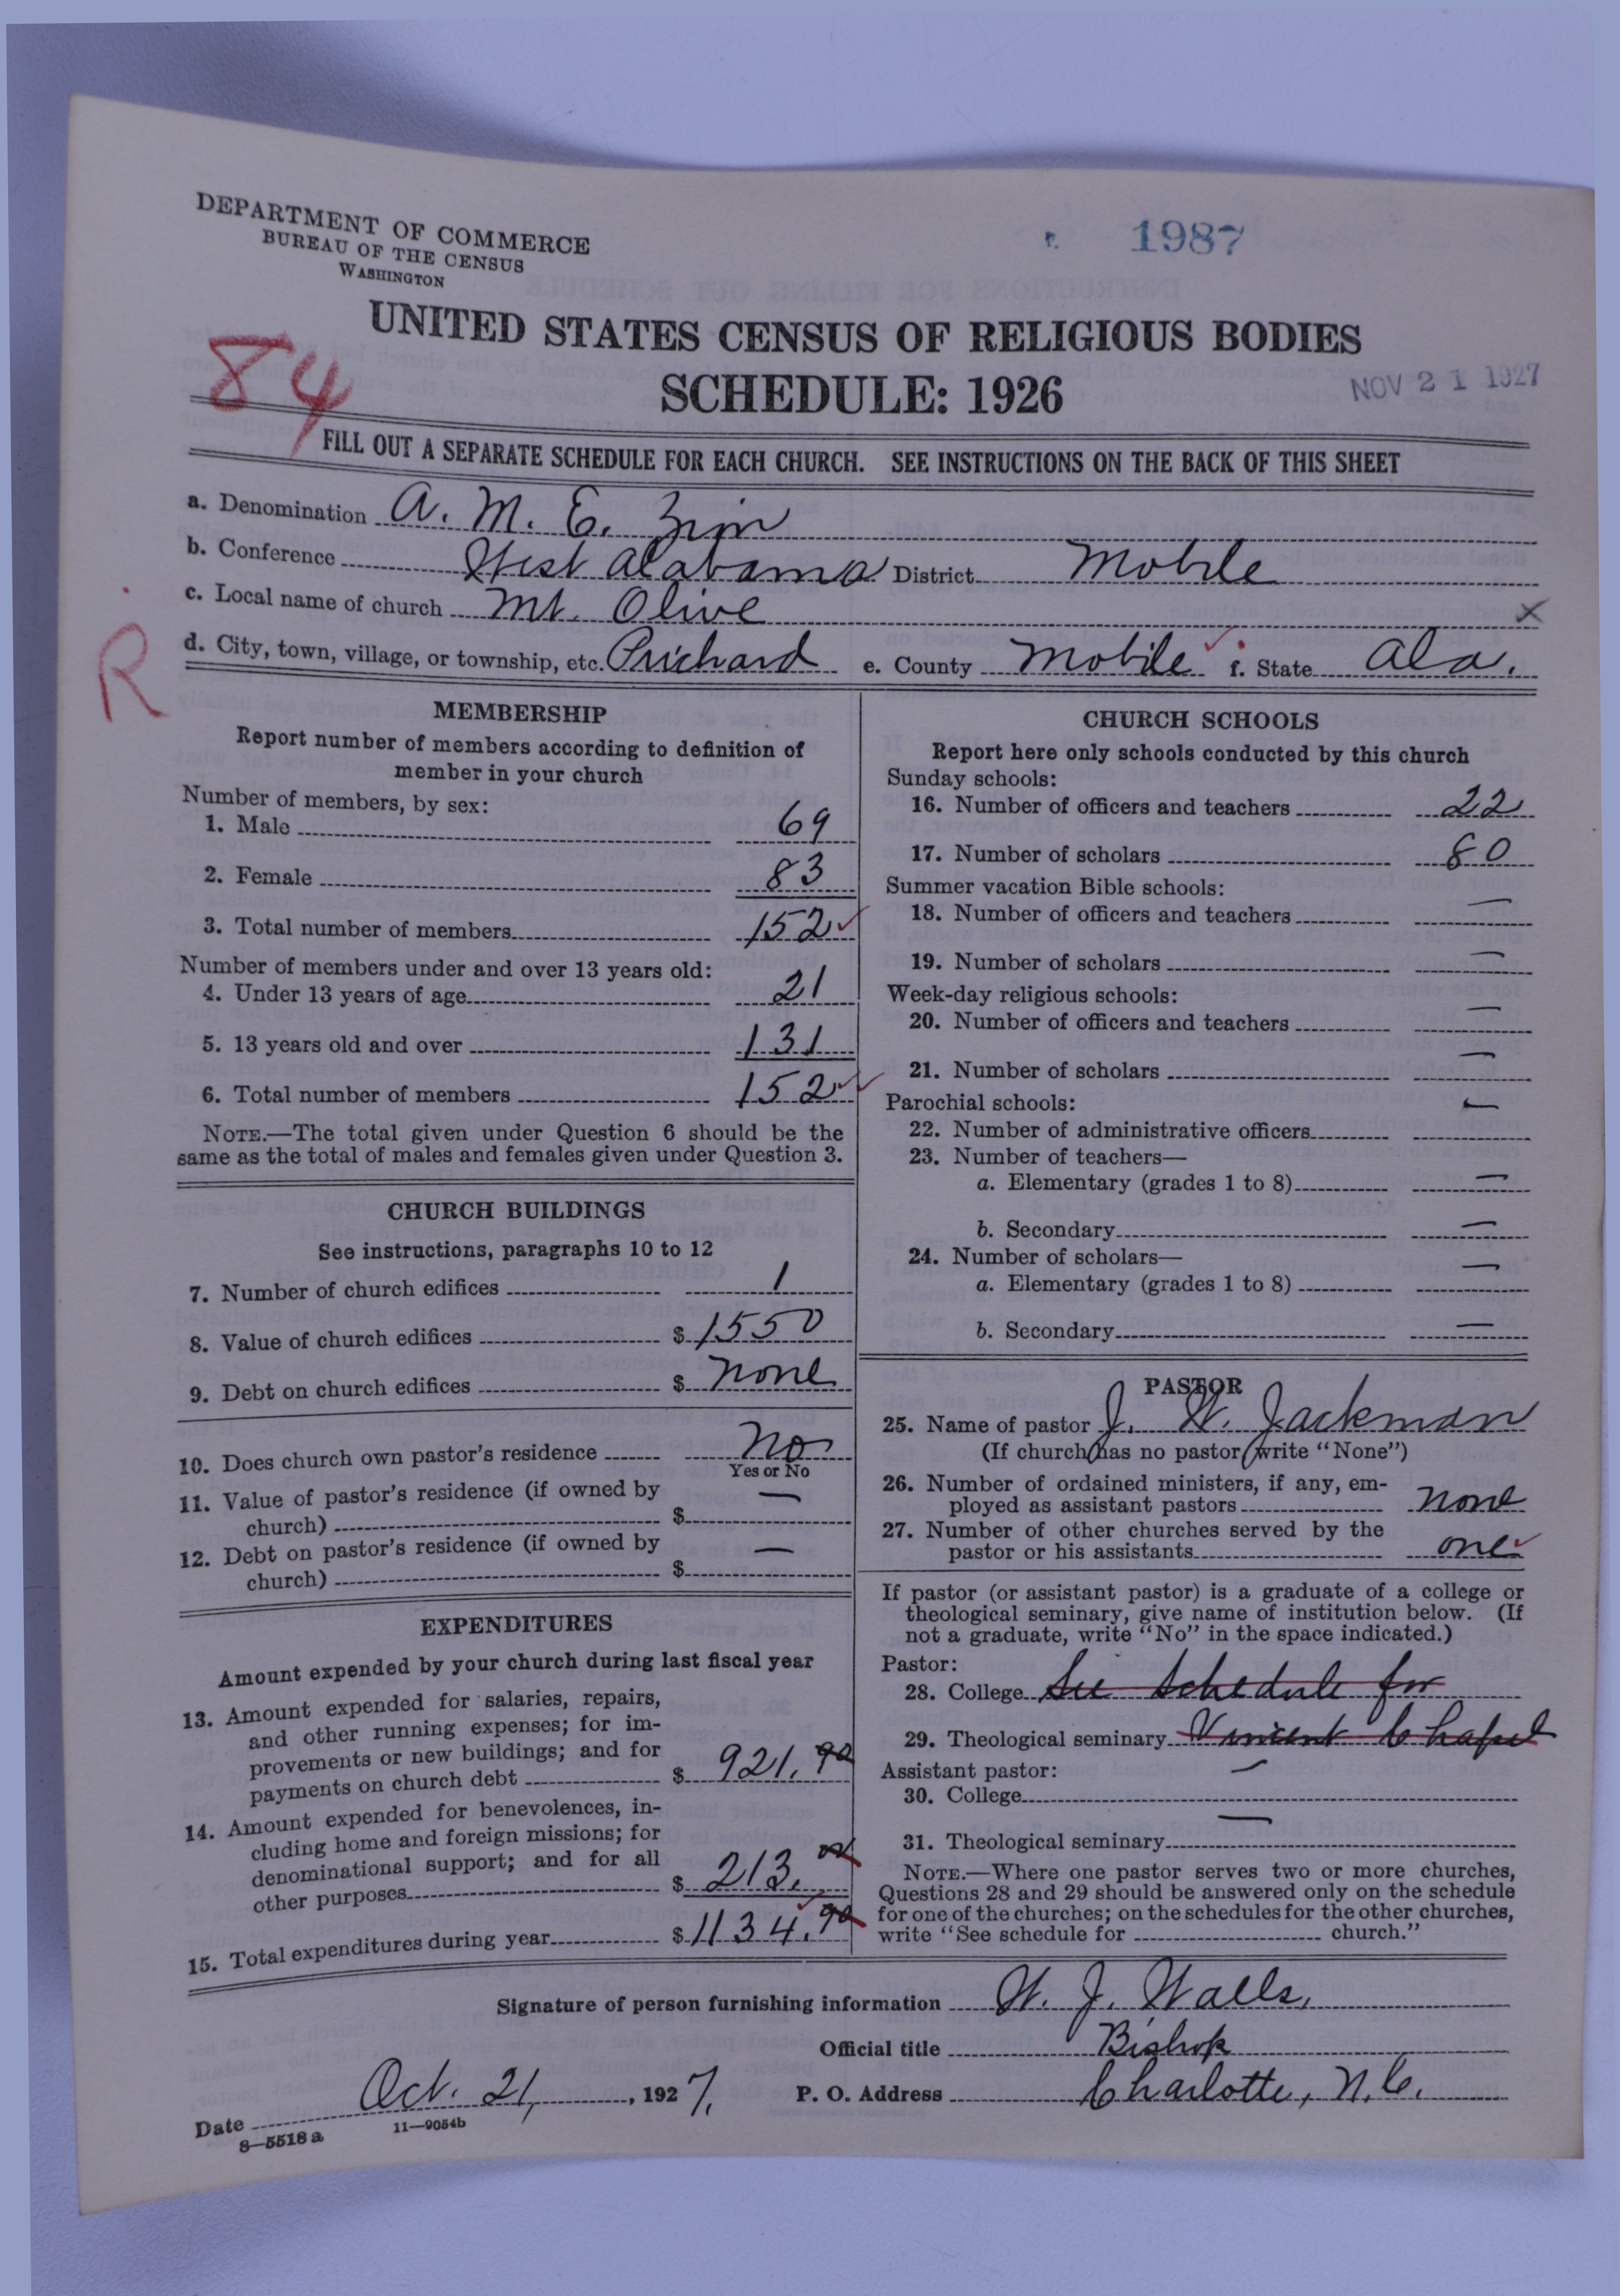 DEPARTMENT OF COMMERCE
BUREAU OF THE CENSUS
WASHINGTON
1987
UNITED STATES CENSUS OF RELIGIOUS BODIES
84
SCHEDULE: 1926
NOV 21 1927
FILL OUT A SEPARATE SCHEDULE FOR EACH CHURCH. SEE INSTRUCTIONS ON THE BACK OF THIS SHEET
a. Denomination A. M. E. Zion
b. Conference West Alabama District Mobile
c. Local name of church Mt. Olive x
R
d. City, town, village, or township, etc. Prichard e. County Mobile f. State Ala.
MEMBERSHIP
Report number of members according to definition of
member in your church
Number of members, by sex:
1. Male 69
2. Female 83
3. Total number of members 152
Number of members under and over 13 years old:
4. Under 13 years of age 21
5. 13 years old and over 131
6. Total number of members 152
NOTE.—The total given under Question 6 should be the
same as the total of males and females given under Question 3.
CHURCH BUILDINGS
See instructions, paragraphs 10 to 12
7. Number of church edifices 1
8. Value of church edifices $ 1550
9. Debt on church edifices $ none
10. Does church own pastor's residence No
Yes or No
11. Value of pastor's residence (if owned by
church) $ —
12. Debt on pastor's residence (if owned by
church) $ —
EXPENDITURES
Amount expended by your church during last fiscal year
13. Amount expended for salaries, repairs,
and other running expenses; for im-
provements or new buildings; and for
payments on church debt $ 921.90
14. Amount expended for benevolences, in-
cluding home and foreign missions; for
denominational support; and for all
other purposes $ 213.00
15. Total expenditures during year $ 1134.90
CHURCH SCHOOLS
Report here only schools conducted by this church
Sunday schools:
16. Number of officers and teachers 22
17. Number of scholars 80
Summer vacation Bible schools:
18. Number of officers and teachers —
19. Number of scholars —
Week-day religious schools:
20. Number of officers and teachers —
21. Number of scholars —
Parochial schools:
22. Number of administrative officers —
23. Number of teachers—
a. Elementary (grades 1 to 8) —
b. Secondary —
24. Number of scholars—
a. Elementary (grades 1 to 8) —
b. Secondary —
PASTOR
25. Name of pastor J. W. Jackman
(If church has no pastor write "None")
26. Number of ordained ministers, if any, em-
ployed as assistant pastors none
27. Number of other churches served by the
pastor or his assistants one
If pastor (or assistant pastor) is a graduate of a college or
theological seminary, give name of institution below. (If
not a graduate, write "No" in the space indicated.)
Pastor:
28. College See Schedule for
29. Theological seminary Vincent Chapel
Assistant pastor:
30. College —
31. Theological seminary —
NOTE.—Where one pastor serves two or more churches,
Questions 28 and 29 should be answered only on the schedule
for one of the churches; on the schedules for the other churches,
write "See schedule for church."
Signature of person furnishing information W. J. Walls,
Official title Bishop
Date Oct. 21, 1927. P. O. Address Charlotte, N.C.
8—5518 a 11—9054b